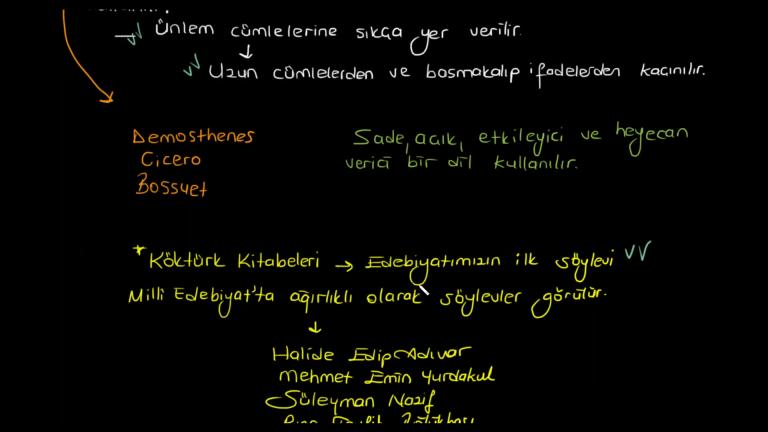 Ünlem cümlelerine sıkça yer verilir.
Uzun cümlelerden ve basmakalıp ifadelerden kaçınılır.
Demosthenes
Cicero
Bossuet
Sade, açık, etkileyici ve heyecan
verici bir dil kullanılır.
* Köktürk Kitabeleri → Edebiyatımızın ilk söylevi
Milli Edebiyat'ta ağırlıklı olarak söylevler görülür.
Halide Edip Adıvar
Mehmet Emin Yurdakul
Süleyman Nazif